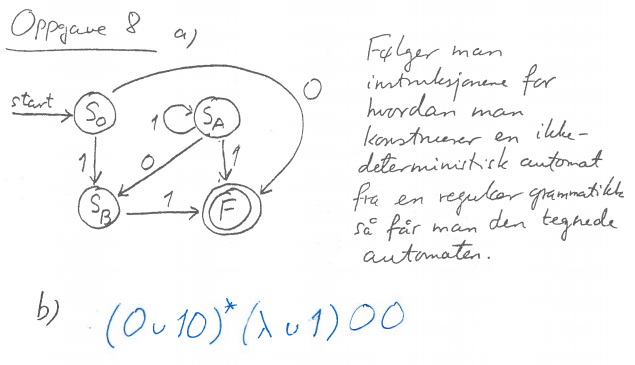 Oppgave 8 a)
start
S₀
1
S_A
0
1
0
1
S_B
1
F
Følger man
instruksjonene for
hvordan man
konstruerer en ikke-
deterministisk automat
fra en regulær grammatikk
så får man den tegnede
automaten.
b) (0 ∪ 10)* (λ ∪ 1) 00